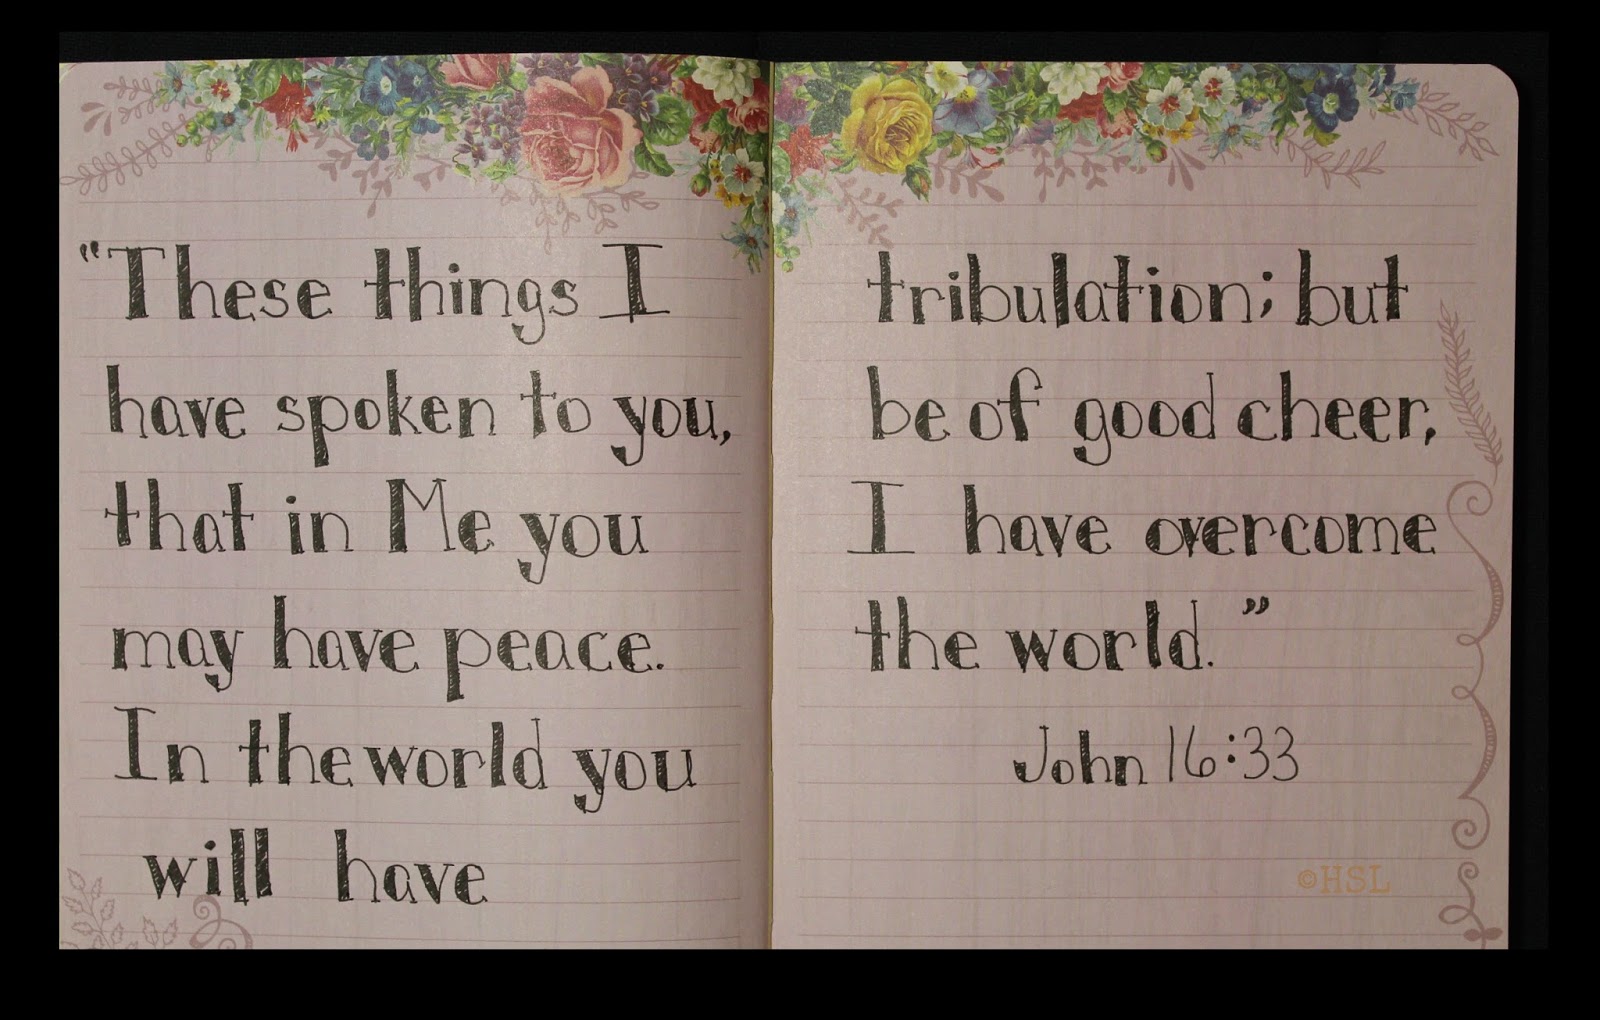 “These things I
have spoken to you,
that in Me you
may have peace.
In the world you
will have
tribulation; but
be of good cheer,
I have overcome
the world.”
John 16:33
©HSL